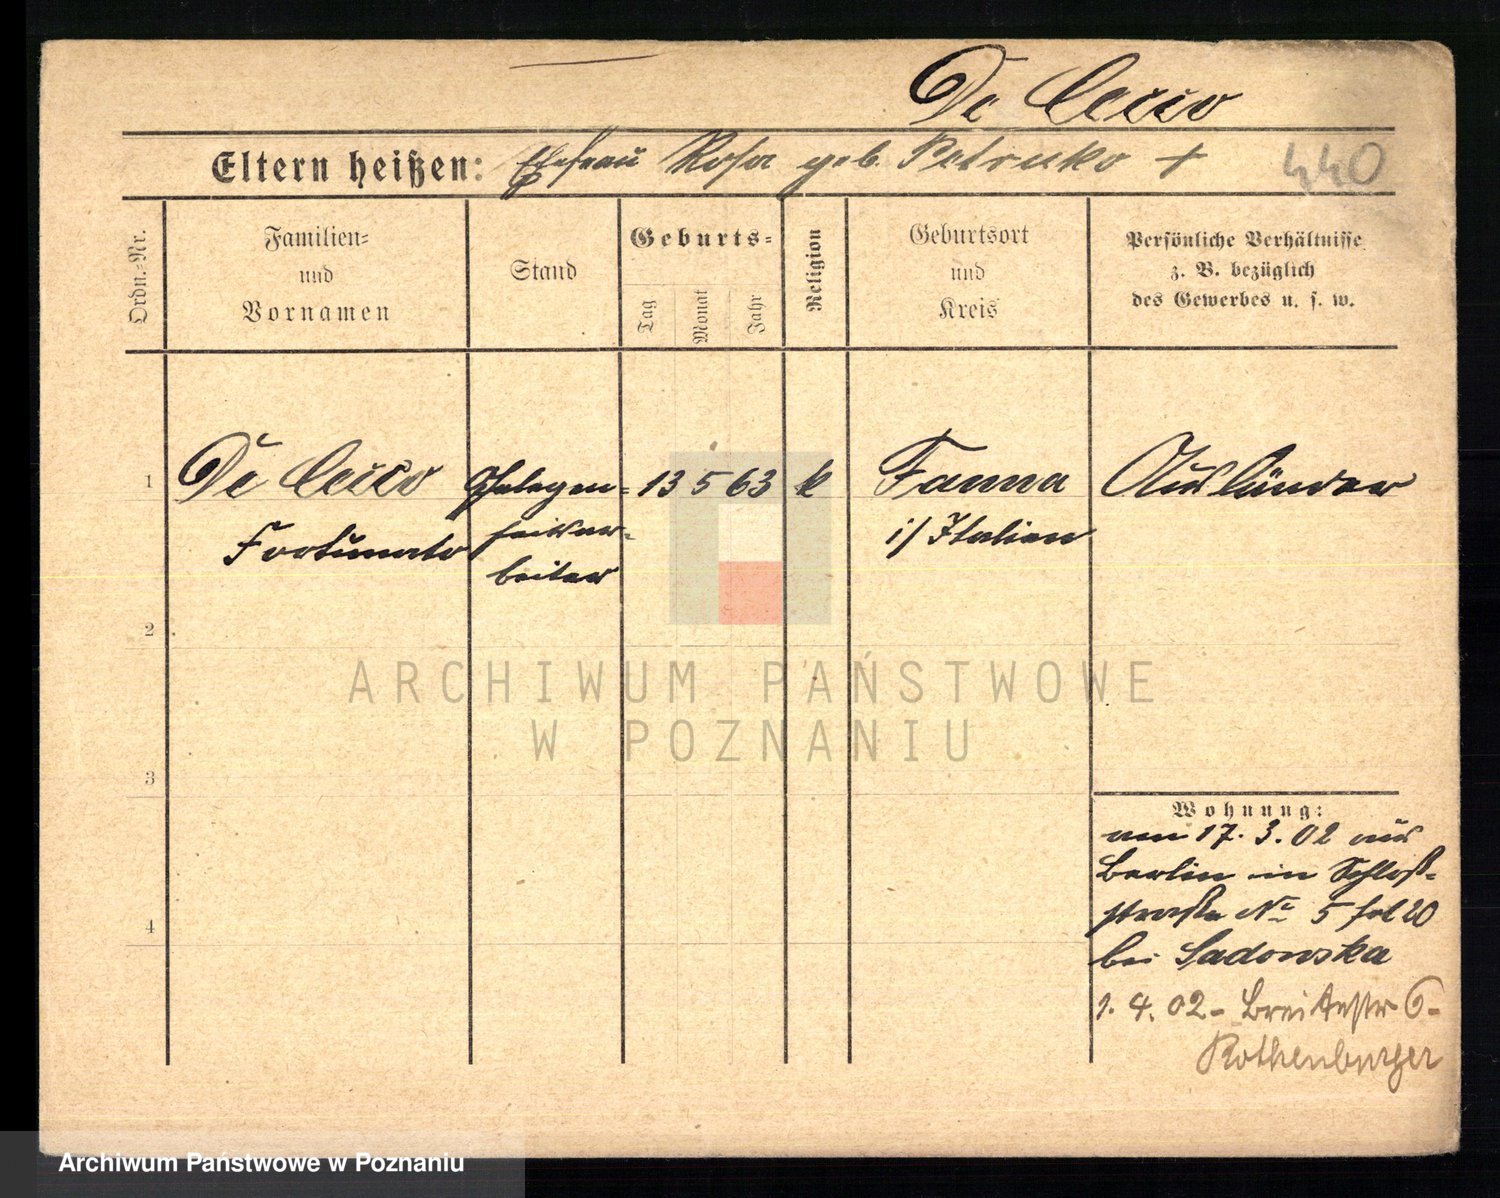 De Cecco
Eltern heißen: Ehefrau Rosa geb. Petrucko +
440
Ordn.-Nr.
Familien-
und
Vornamen
Stand
Geburts-
Tag
Monat
Jahr
Religion
Geburtsort
und
Kreis
Persönliche Verhältnisse
z. B. bezüglich
des Gewerbes u. s. w.
1 De Cecco Gelegen- 13 5 63 k Fanna Ausländer
Fortunato heitsar- i/ Italien
beiter
2
3
4
Wohnung:
am 17. 3. 02 aus
Berlin in Schloß-
straße No 5 bei
bei Sadowska
1. 4. 02 - Breitestr 6-
Rothenburger
ARCHIWUM PAŃSTWOWE
W POZNANIU
Archiwum Państwowe w Poznaniu